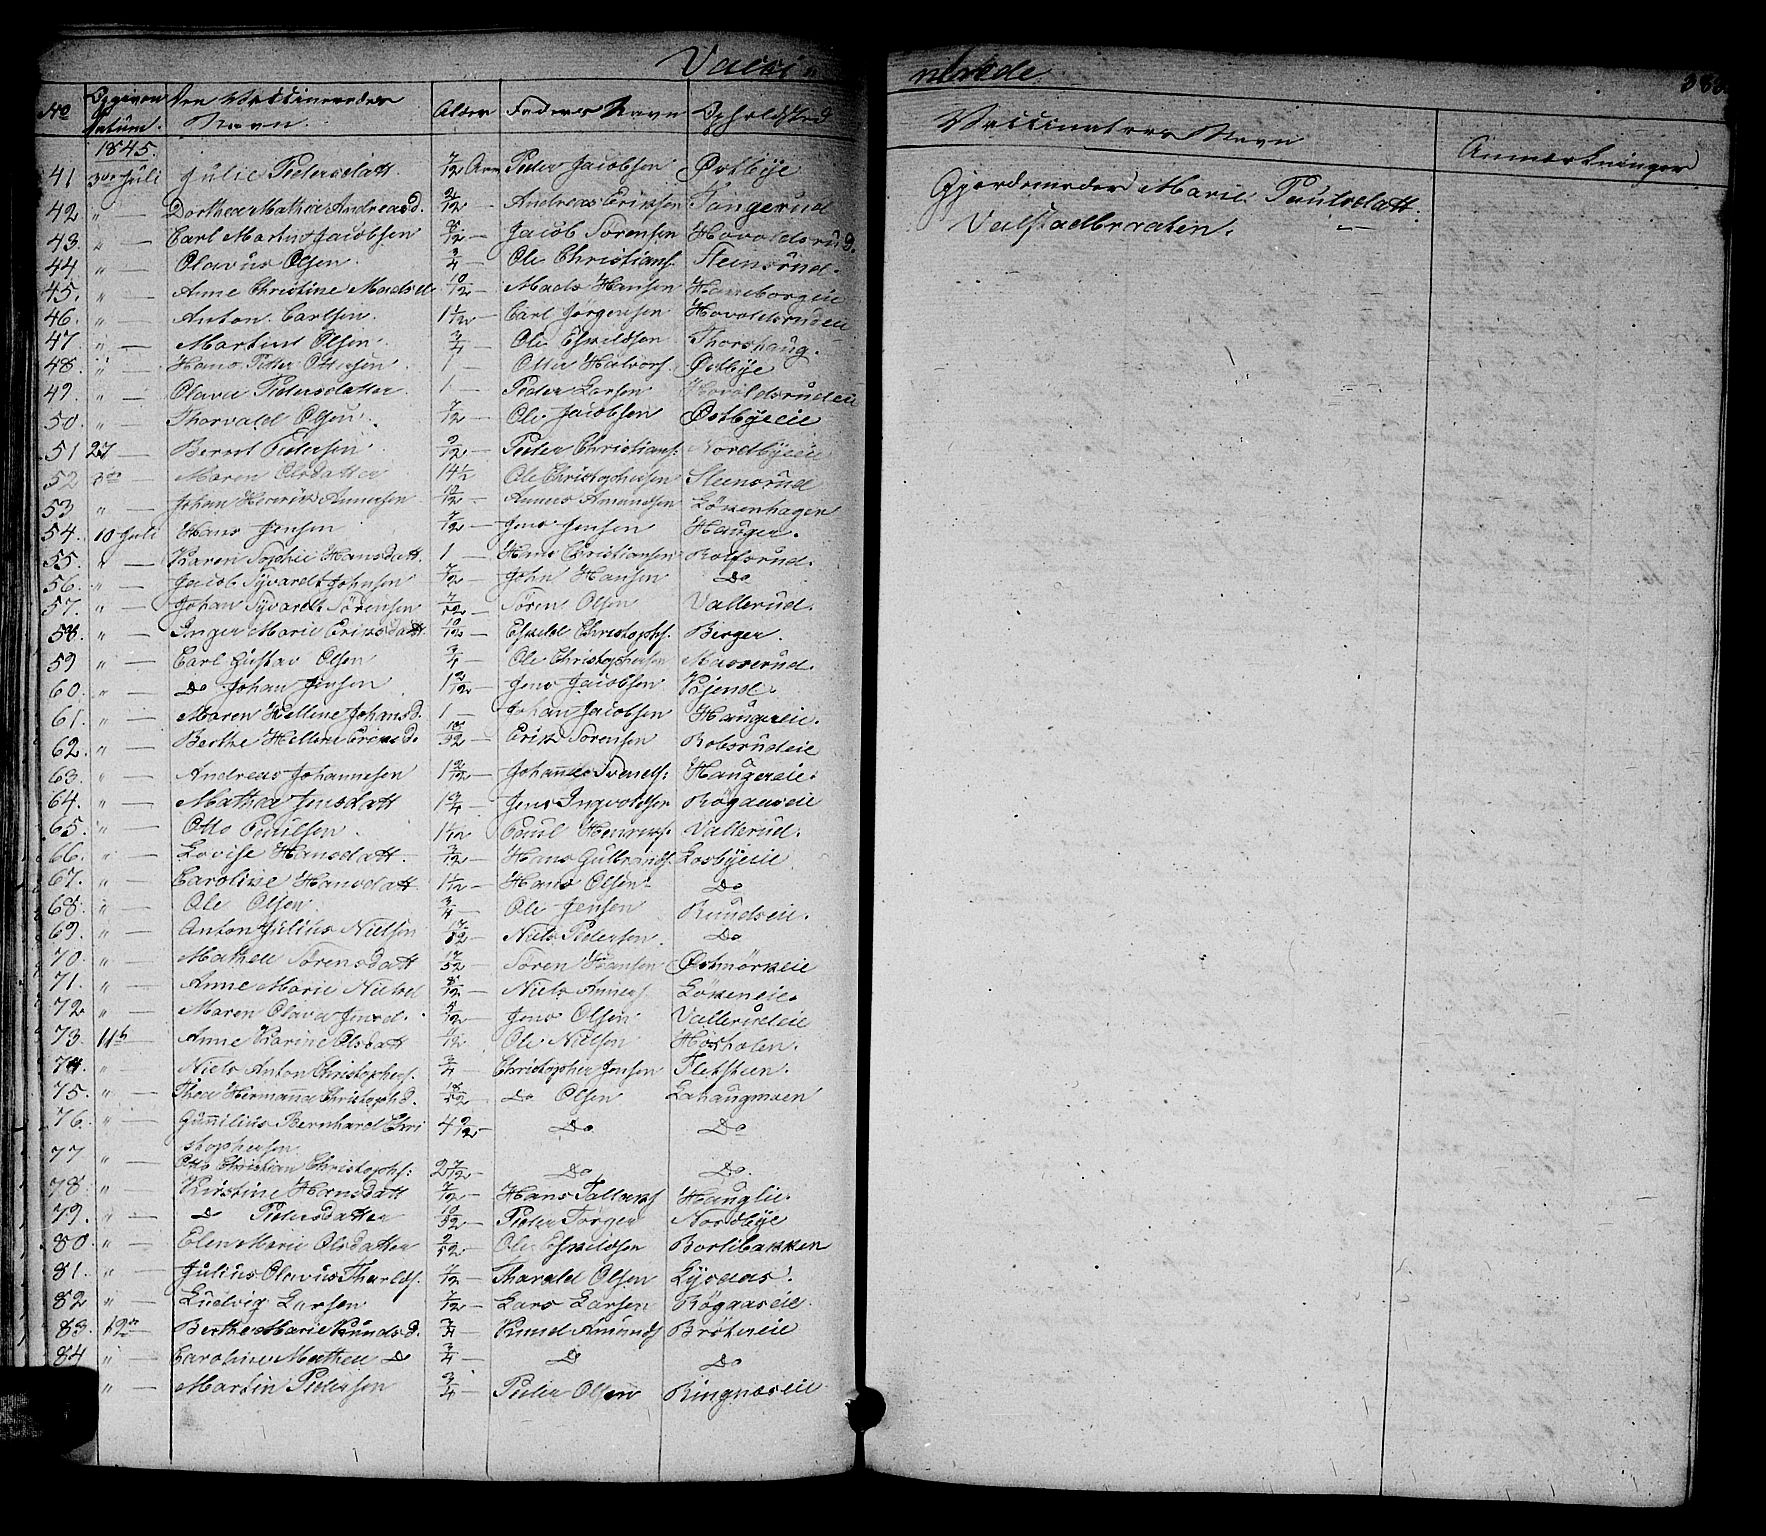 Vacci" nerede 383
No Opgiven Datum. Den Vaccineredes Navn. Alder Faders Navn Opholdsted Vaccinateurs Navn Anmærkninger
1845.
41 3die Juli Julie Pedersdatt. 7/12 Aar Peder Jacobsen Østbye Gjordemoder Marie Paulsdatt.
42 " — Dorthea Mathea Andreasd. 2/12 — Andreas Eriksen Tangerud Valstadbraaten. " —
43. " — Carl Martin Jacobsen 8/12 — Jacob Sørensen Hovoldsrud.
44 " — Olavus Olsen 3/4 — Ole Christians. Steensrud.
45. " — Anne Christine Madsd 10/12 — Mads Hansen Haneborgeie
46. " — Anton Carlsen. 1 1/12 — Carl Jørgensen Hovoldsrudeie
47. " — Martin Olsen. 3/4 — Ole Eskildsen Thorshaug.
48. " — Hans Peter Ottersen 1 — Otter Halvors. Østbye
49. " — Olava Pedersdatter 1 — Peder Larsen Hovoldsrudeie
50. " — Thorvald Olsen. 7/12 — Ole Jacobsen Østbyeeie
51 27 — Bernt Pedersen 9/12 — Peder Christians. Nordbyeeie
52 3die — Maren Olsdatter 14 1/2 — Ole Christophersen Steensrud
53 " — Johan Henrik Annusen — Amund Amundsen Lökenhagen
54. 10 Juli Hans Jensen 7/12 — Jens Jensen Hauger.
55. " — Karen Sophie Hansdatt. 1 — Hans Christiansen Rolfsrud.
56. " — Jacob Syvardt Johnsen 7/12 — John Hansen Do
57. " — Johan Syvardt Sörensen 7/52 — Sören Olsen Vallerud.
58. " — Inger Marie Eriksdatt. 10/12 — Eskild Christophs. Berger.
59 " — Carl Gustav Olsen 3/4 — Ole Christophersen Masserud.
60. " — Do Johan Jensen 1 2/12 — Jens Jacobsen Kjend.
61. " — Maren Helline Johansd. 1 — Johan Jacobsen Haugereie.
62. " — Berthe Helline Eriksd. 10/52 — Erik Sörensen Robsrudeie
63. " — Andreas Johannesen 1 2/12 — Johannes Svends. Haugereie.
64. " — Mathea Jensdatt 1 3/4 — Jens Ingvoldsen Rögaaseie
65. " — Otto Paulsen. 1 1/12 — Paul Henriks. Vallerud.
66. " — Lovise Hansdatt. 3/12 — Hans Gulbrands. Losbyeeie
67. " — Caroline Hansdatt. 1 1/12 — Hans Olsen Do
68. " — Ole Olsen. 3/4 — Ole Jensen Rundseie.
69. " — Anton Julius Nielsen 17/52 — Niels Pedersen. Do
70. " — Mathea Sörensdatt 17/52 — Sören Hansen Østmörkeie
71. " — Anne Marie Nielsd 8/12 — Niels Anners. Lökeneie.
72. " — Maren Olava Jensd. 5/12 — Jens Olsen Vallerudeie
73. 11te — Anne Karine Olsdatt — Ole Nielsen Høsholen.
74 " — Niels Anton Christophers. 3/4 — Christopher Jensen Fletsteen.
75. " — Thea Hermana Christophd. 18/52 — Do Olsen Lahaugmoen
76. " — Gunnilius Bernhard Chri stophersen. 4 9/12 — Do Do
77 " — Otto Christian Christophs: 2 7/12 — Do Do.
78. " — Kirstine Hansdatt 7/12 — Hans Tallaks Hauglie.
79. " — Do Pedersdatter 10/52 — Peder Torger Nordbye
80. " — Elen Marie Olsdatter 2/52 — Ole Eskildsen Bortibakken
81. " — Julius Olavus Tharlds. 7/12 — Tharald Olsen Lysaas.
82 " — Ludvig Larsen 7/12 — Lars Larsen Rögaaseie.
83. 12te — Berthe Marie Knudsd. 3/4 — Knud Amunds Brötereie
84 " — Caroline Mathea Do 3/4 — Do Do
" — Martin Pedersen 3/4 — Peder Olsen Ringnæseie